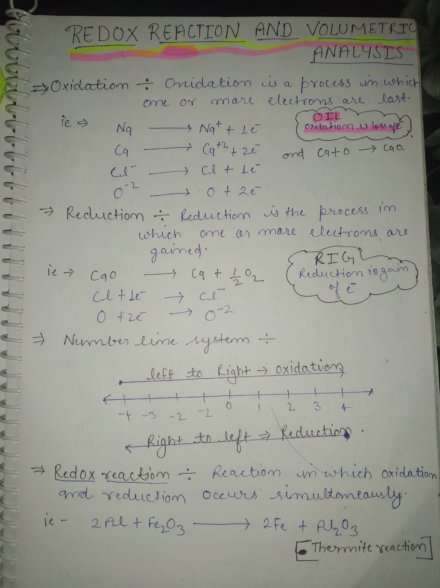 REDOX REACTION AND VOLUMETRIC
ANALYSIS
⇒ Oxidation ÷ Oxidation is a process in which
one or more electrons are lost.
ie → Na ⟶ Na⁺ + 1e⁻
OIL
Oxidation is loss of e⁻
Ca ⟶ Ca⁺² + 2e⁻
and Ca+O → CaO.
Cl⁻ ⟶ Cl + 1e⁻
O⁻² ⟶ O + 2e⁻
⇒ Reduction ÷ Reduction is the process in
which one or more electrons are
gained.
RIG
Reduction is gain
of e⁻
ie → CaO ⟶ Ca + 1/2 O₂
Cl + 1e⁻ → Cl⁻
O + 2e⁻ → O⁻²
⇒ Number line system ÷
left to Right → oxidation
-4 -3 -2 -1 0 1 2 3 4
Right to left ⇒ Reduction.
⇒ Redox reaction ÷ Reaction in which oxidation
and reduction occurs simultaneously.
ie - 2Al + Fe₂O₃ ⟶ 2Fe + Al₂O₃
[Thermite reaction]